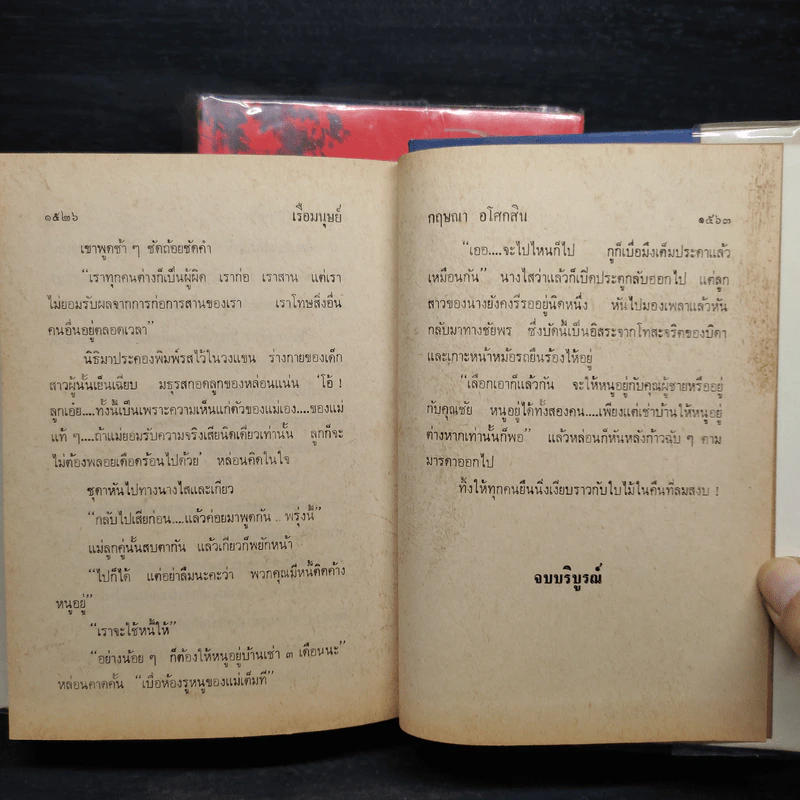 ๑๕๒๖ เรือมนุษย์
เขาพูดซ้ำ ๆ ชัดถ้อยชัดคำ
“เราทุกคนต่างก็เป็นผู้ผิด เราก่อ เราสาน แต่เรา
ไม่ยอมรับผลจากการก่อการสานของเรา เราโทษสิ่งอื่น
คนอื่นอยู่ตลอดเวลา”
นิธิมาประคองพิมพ์รสไว้ในวงแขน ร่างกายของเด็ก
สาวผู้นั้นเย็นเฉียบ มธุรสกอดลูกของหล่อนแน่น ‘โอ้ !
ลูกเอ๋ย....ทั้งนี้เป็นเพราะความเห็นแก่ตัวของแม่เอง....ของแม่
แท้ ๆ....ถ้าแม่ยอมรับความจริงเสียนิดเดียวเท่านั้น ลูกก็จะ
ไม่ต้องพลอยเดือดร้อนไปด้วย’ หล่อนคิดในใจ
ชุดาหันไปทางนางไสและเกียว
“กลับไปเสียก่อน....แล้วค่อยมาพูดกัน .. พรุ่งนี้”
แม่ลูกคู่นั้นสบตากัน แล้วเกียวก็พยักหน้า
“ไปก็ได้ แต่อย่าลืมนะคะว่า พวกคุณมีหนี้คิดค้าง
หนูอยู่”
“เราจะใช้หนี้ให้”
“อย่างน้อย ๆ ก็ต้องให้หนูอยู่บ้านเช่า ๓ เดือนนะ”
หล่อนคาดคั้น “เบื่อห้องรูหนูของแม่เต็มที”
กฤษณา อโศกสิน ๑๕๖๓
“เออ....จะไปไหนก็ไป กูก็เบื่อมึงเต็มประดาแล้ว
เหมือนกัน” นางไสว่าแล้วก็เปิดประตูกลับออกไป แต่ลูก
สาวของนางยังคงรีรออยู่นิดหนึ่ง หันไปมองเพลาแล้วหัน
กลับมาทางชัยพร ซึ่งบัดนี้เป็นอิสระจากโทสะจริตของบิดา
และเกาะหน้าหม้อรถยืนร้องไห้อยู่
“เลือกเอาก็แล้วกัน จะให้หนูอยู่กับคุณผู้ชายหรืออยู่
กับคุณชัย หนูอยู่ได้ทั้งสองคน....เพียงแต่เช่าบ้านให้หนูอยู่
ต่างหากเท่านั้นก็พอ” แล้วหล่อนก็หันหลังก้าวฉับ ๆ ตาม
มารดาออกไป
ทิ้งให้ทุกคนยืนนิ่งเงียบราวกับใบไม้ในคืนที่ลมสงบ !
จบบริบูรณ์